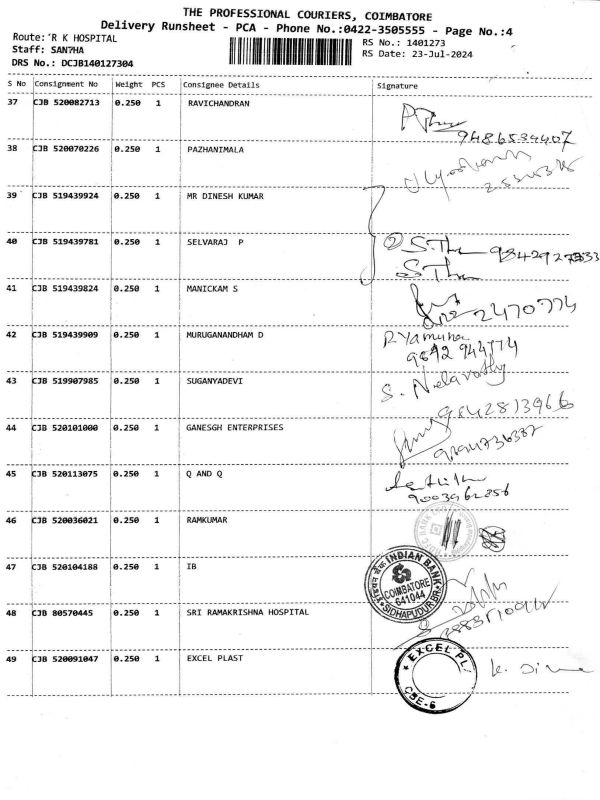 THE PROFESSIONAL COURIERS, COIMBATORE
Delivery Runsheet - PCA - Phone No.:0422-3505555 - Page No.:4
Route: R K HOSPITAL
RS No.: 1401273
Staff: SAN7HA
RS Date: 23-Jul-2024
DRS No.: DCJB140127304
S No Consignment No Weight PCS Consignee Details Signature
37 CJB 520082713 0.250 1 RAVICHANDRAN
9486534407
38 CJB 520070226 0.250 1 PAZHANIMALA
39 CJB 519439924 0.250 1 MR DINESH KUMAR
40 CJB 519439781 0.250 1 SELVARAJ P
41 CJB 519439824 0.250 1 MANICKAM S
2470774
42 CJB 519439909 0.250 1 MURUGANANDHAM D
P. Yamuna
9842 944774
43 CJB 519907985 0.250 1 SUGANYADEVI
9842813966
44 CJB 520101000 0.250 1 GANESGH ENTERPRISES
45 CJB 520113075 0.250 1 Q AND Q
9003962256
46 CJB 520036021 0.250 1 RAMKUMAR
47 CJB 520104188 0.250 1 IB
INDIAN BANK
COIMBATORE
641044
SIDHAPUDUR BR
48 CJB 80570445 0.250 1 SRI RAMAKRISHNA HOSPITAL
49 CJB 520091047 0.250 1 EXCEL PLAST
EXCEL PL
CBE-6